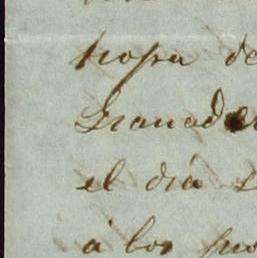 tropa de
Granader
el dia
á los